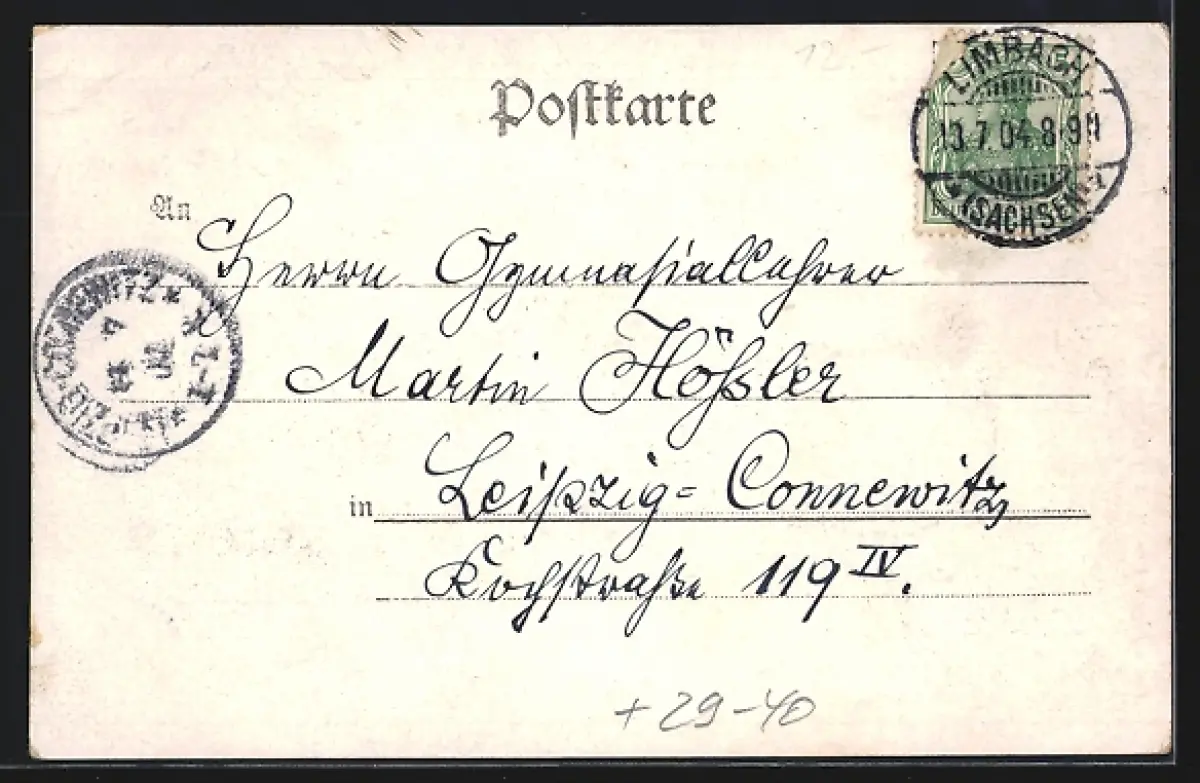 12.-
Postkarte
LIMBACH
13.7.04.8-9N
(SACHSEN)
An
Herrn Gymnasiallehrer
Martin Hößler
in Leipzig-Connewitz
Kochstraße 119 IV.
LEIPZIG-CONNEWITZ
+29-40